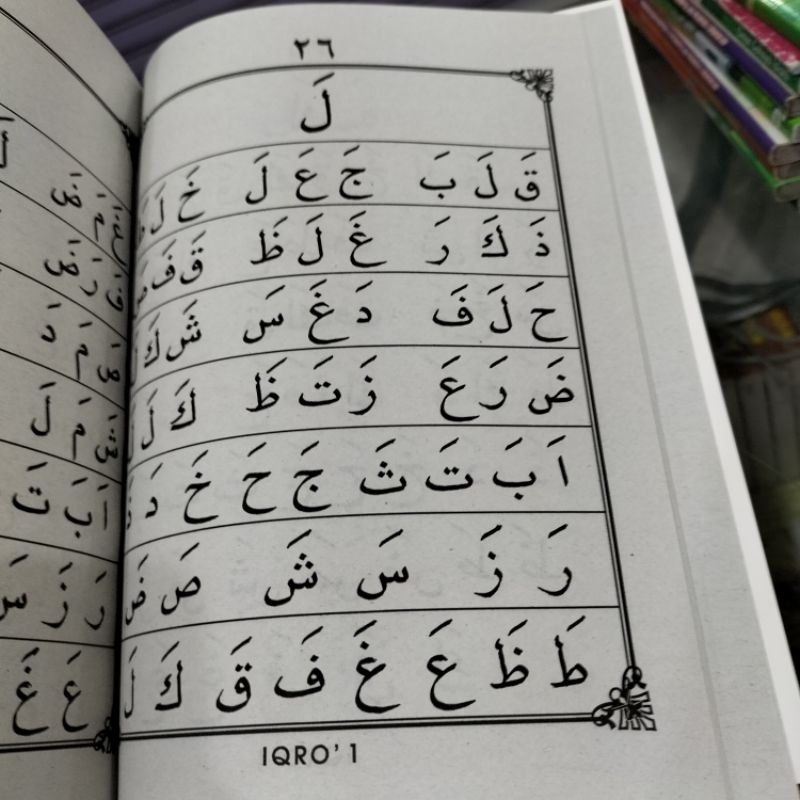 ٢٦
لَ
قَ لَ بَ جَ عَ لَ خَ لَ
ذَ كَ رَ غَ لَ ظَ قَ فَ
حَ لَ فَ دَ غَ سَ شَ كَ
ضَ رَ عَ زَ تَ ظَ كَ لَ لَ
اَ بَ تَ ثَ جَ حَ خَ دَ
رَ زَ سَ شَ صَ ضَ
طَ ظَ عَ غَ فَ قَ كَ لَ
IQRO' 1
مَ دَ
مَ لَ
اَ بَ تَ
رَ زَ سَ
عَ غَ